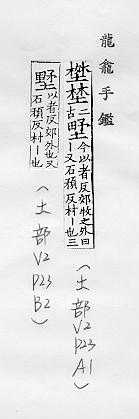 龍龕手鑑
埜二古野今以者反郊牧之外曰
一又石預反村一也三
(土部V2 P23 A1)
以者反郊外也又
石預反村一也
(土部V2 P23 B2)